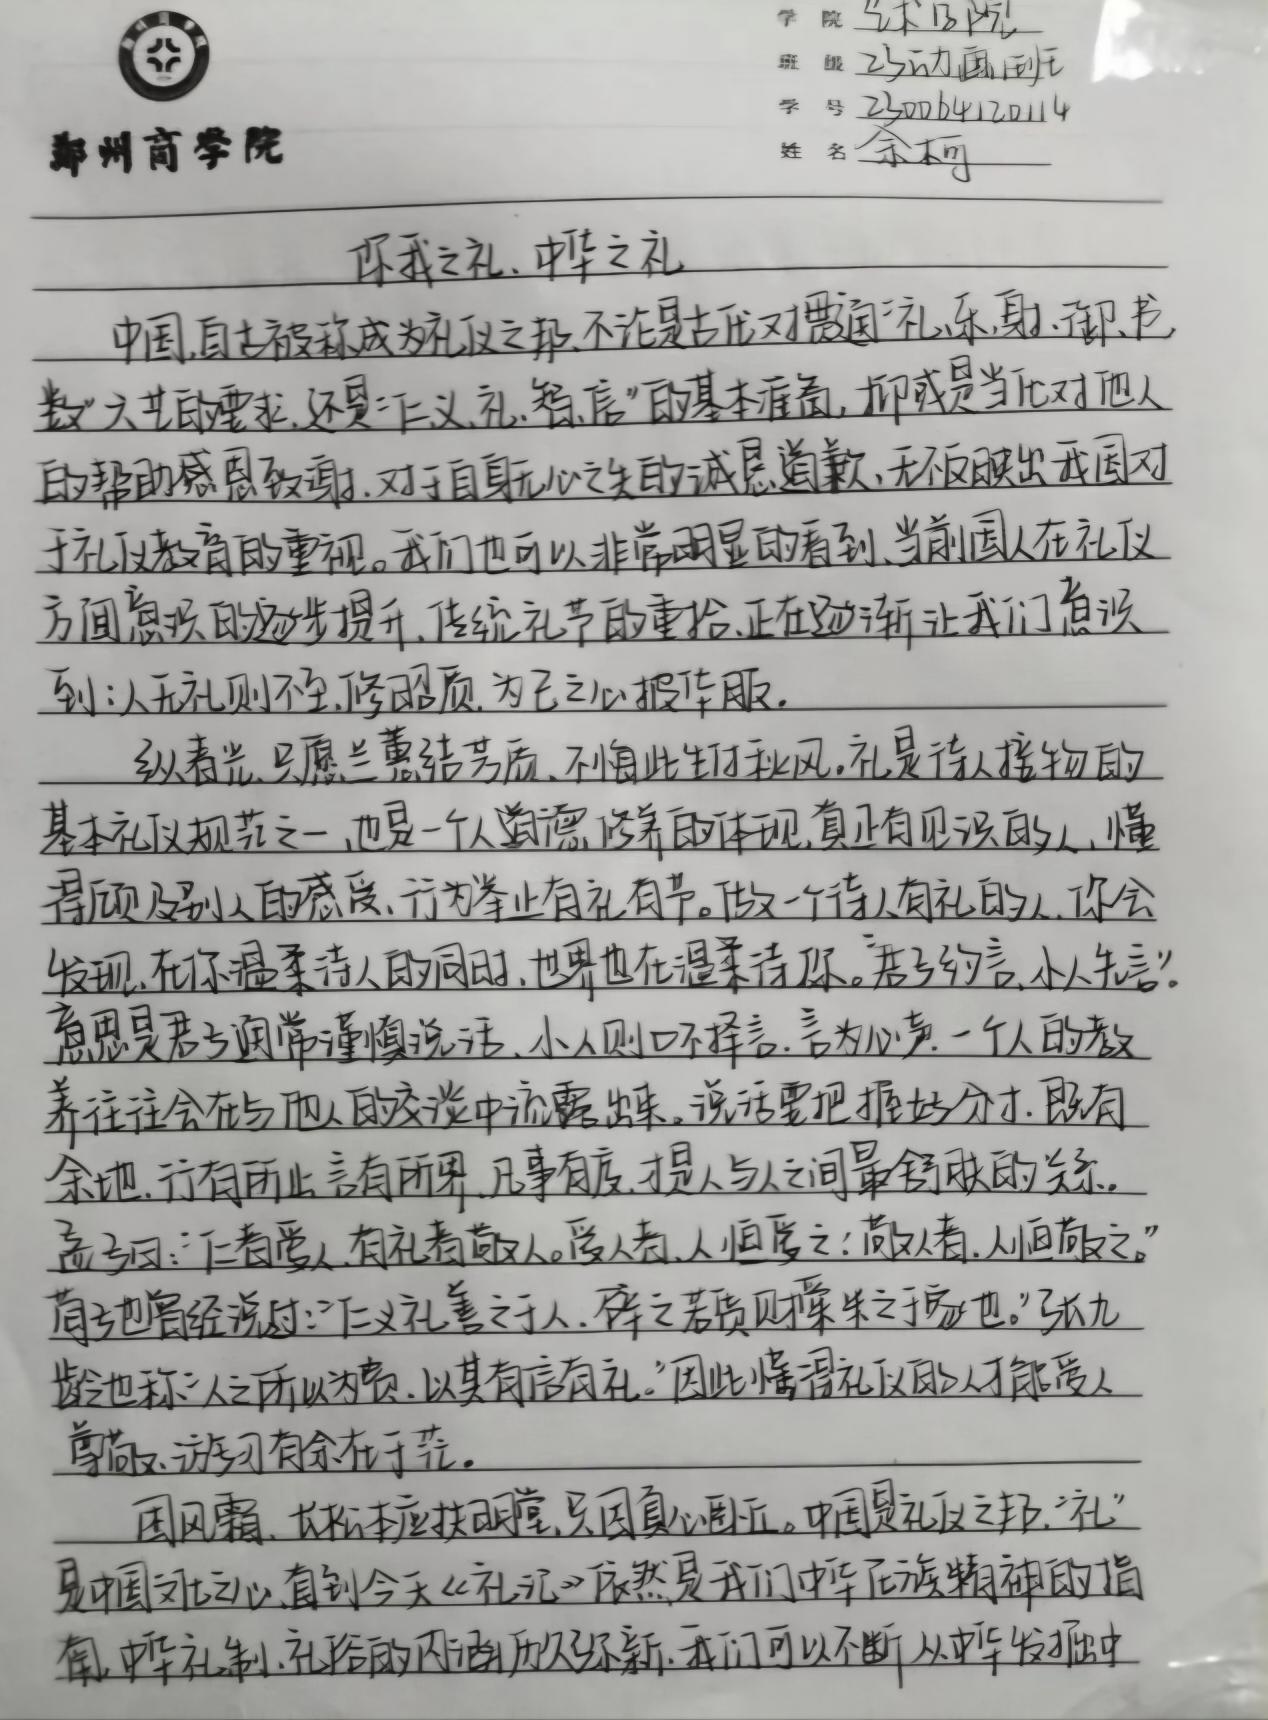 学院 艺术学院
班级 23动画1班
学号 230064120114
姓名 余柯
郑州商学院
你我之礼、中华之礼
中国,自古被称成为礼仪之邦、不论是古代对要通“礼、乐、射、御、书、
数”六艺的要求、还是“仁、义、礼、智、信”的基本准备,抑或是当代对他人
的帮助感恩致谢、对于自身无心之失的诚恳道歉、无不反映出我国对
于礼仪教育的重视。我们也可以非常明显的看到、当前国人在礼仪
方面意识的逐步提升、传统礼节的重拾、正在逐渐让我们意识
到:人无礼则不至、修昭质、为已之心披华服。
纵春光、只愿兰蕙结芳质、不悔此生付秋风。礼是待人接物的
基本礼仪规范之一、也是一个人道德、修养的体现、真正有见识的人、懂
得顾及别人的感受、行为举止有礼有节。做一个待人有礼的人、你会
发现、在你温柔待人的同时、世界也在温柔待你。“君子约言、小人先言”。
意思是君子通常谨慎说话、小人则口不择言.言为心声.一个人的教
养往往会在与他人的交谈中流露出来。说话要把握好分寸.既有
余地.行有所止言有所界.凡事有度.才是人与人之间最舒服的关系。
孟子曰:“仁者爱人、有礼者敬人。爱人者、人恒爱之;敬人者、人恒敬之。”
荀子也曾经说过:“仁义礼善之于人、辟之若货财粟米之于家也。”张九
龄也称“人之所以为贵、以其有信有礼。”因此懂得礼仪的人才能受人
尊敬、游刃有余在于范。
困风霜、长松本应扶明堂、只因真心画丘。中国是礼仪之邦、“礼”
是中国文化之心、直到今天《礼记》依然是我们中华民族精神的指
南、中华礼制、礼俗的内涵历久弥新、我们可以不断从中华发掘中